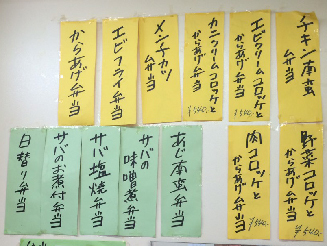 チキン南蛮
弁当
エビクリームコロッケと
からあげ弁当
¥540.
カニクリームコロッケと
からあげ弁当
¥540.
メンチカツ
弁当
エビフライ弁当
からあげ弁当
野菜コロッケと
からあげ弁当
¥540.
肉コロッケと
からあげ弁当
¥540.
あじ南蛮弁当
サバの
味噌煮弁当
サバ塩焼弁当
サバのお煮付弁当
日替り弁当